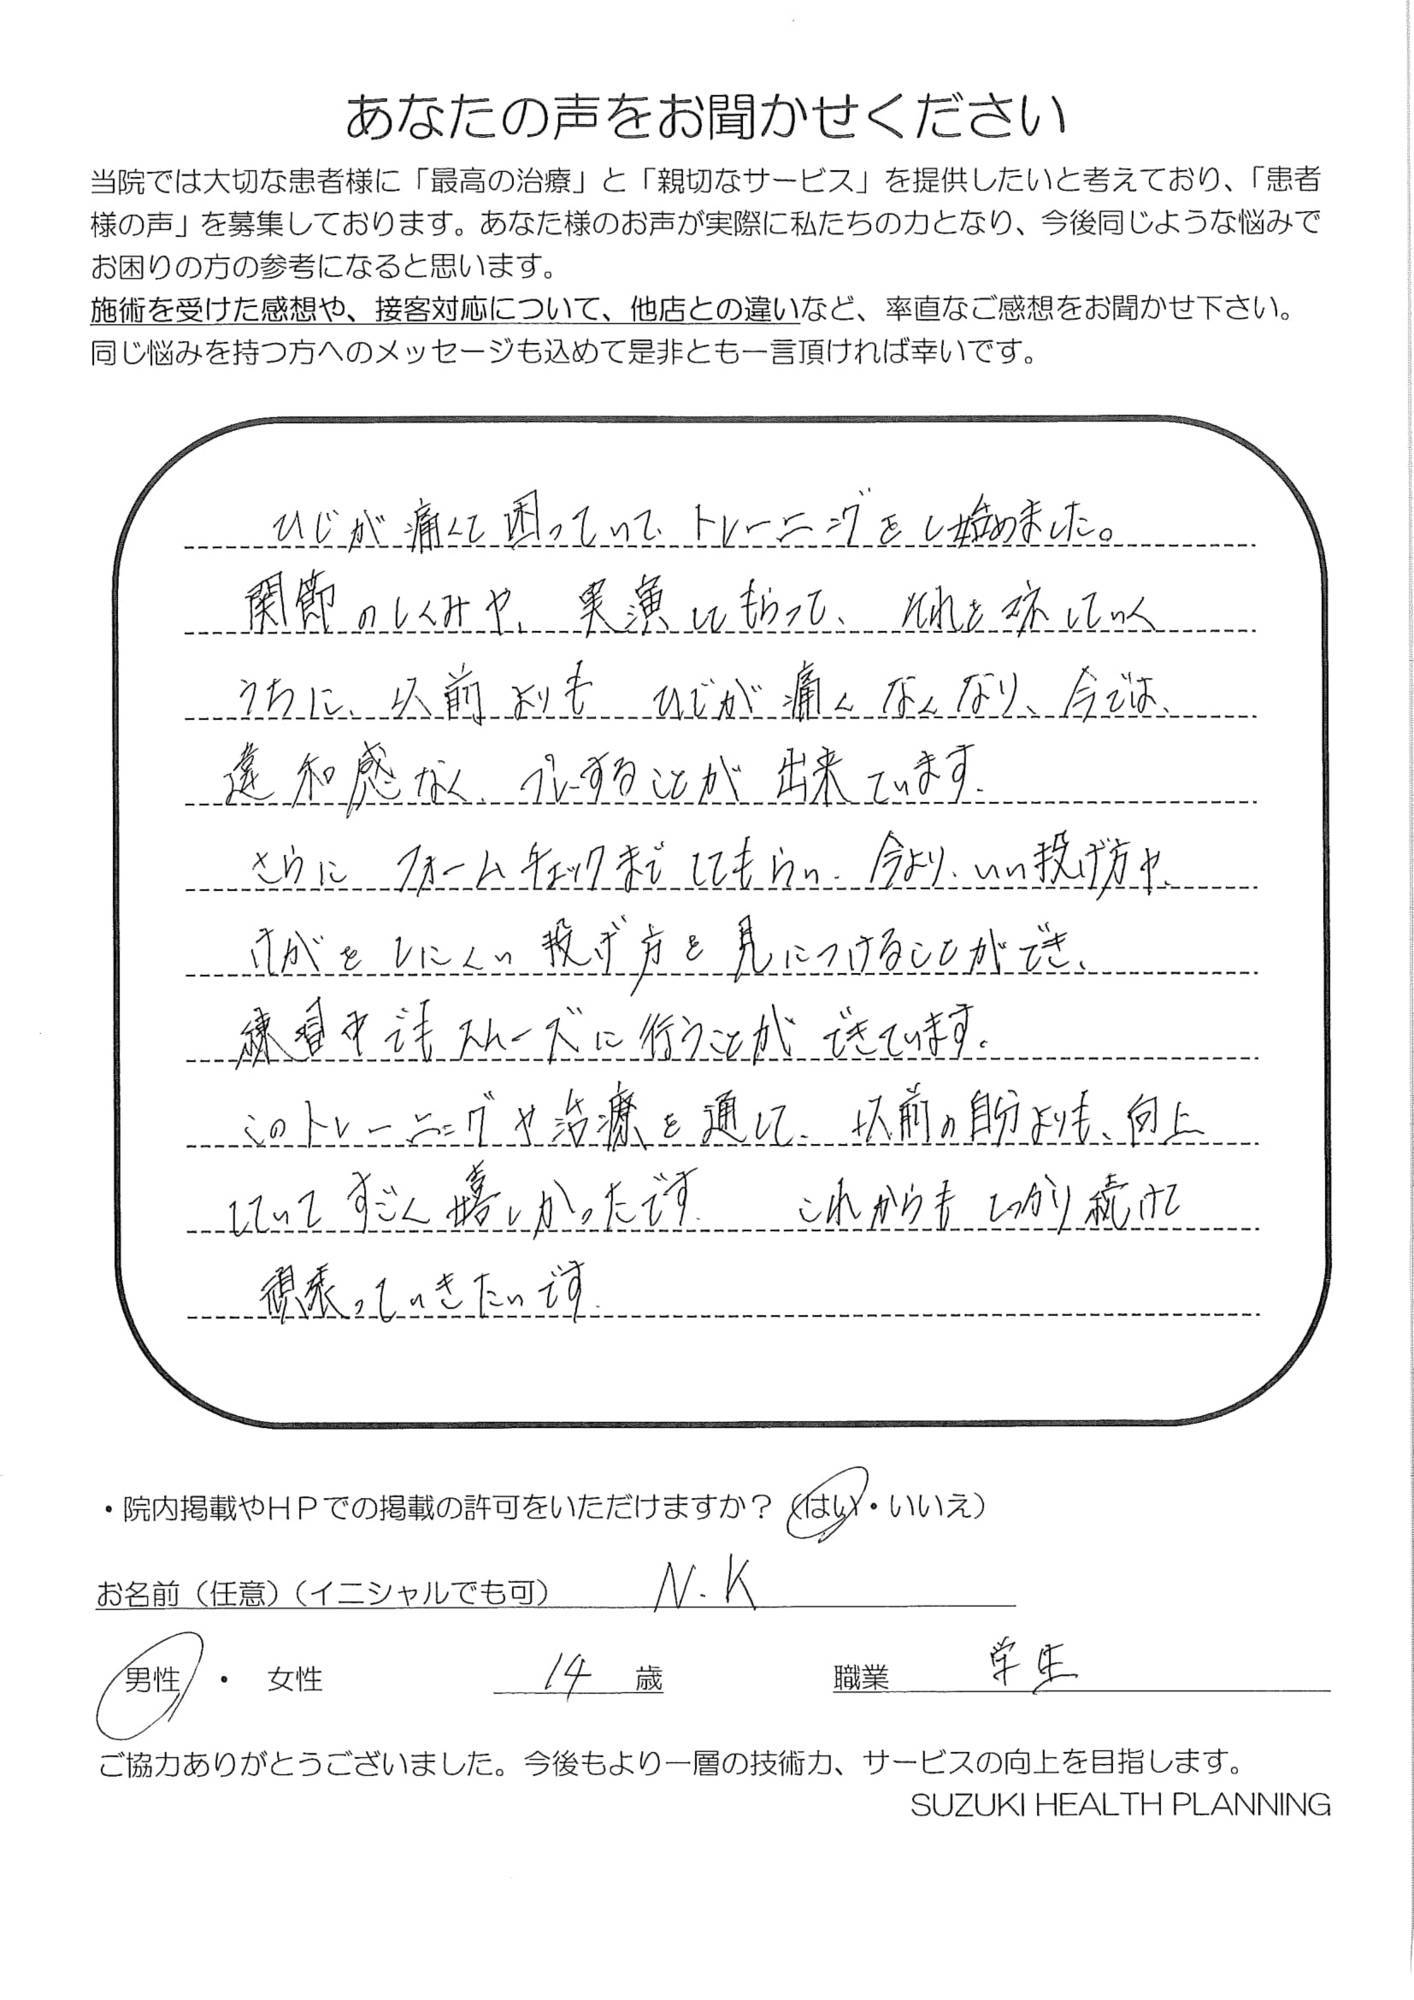 あなたの声をお聞かせください
当院では大切な患者様に「最高の治療」と「親切なサービス」を提供したいと考えており、「患者
様の声」を募集しております。あなた様のお声が実際に私たちの力となり、今後同じような悩みで
お困りの方の参考になると思います。
施術を受けた感想や、接客対応について、他店との違いなど、率直なご感想をお聞かせ下さい。
同じ悩みを持つ方へのメッセージも込めて是非とも一言頂ければ幸いです。
ひじが痛くて困っていて、トレーニングをし始めました。
関節のしくみや、実演してもらって、それを していく
うちに、以前よりも ひじが痛くなくなり、今では、
違和感なく、プレーすることが出来ています。
さらに フォームチェックまでしてもらい、今より、いい投げ方や、
けがをしにくい投げ方を見につけることができ、
練習中でもスムーズに行うことができています。
このトレーニングや治療を通して、以前の自分よりも、向上
していてすごく嬉しかったです。 これからもしっかり続けて
頑張っていきたいです。
・院内掲載やHPでの掲載の許可をいただけますか?(はい・いいえ)
お名前(任意)(イニシャルでも可) N.K
男性 ・ 女性 14 歳 職業 学生
ご協力ありがとうございました。今後もより一層の技術力、サービスの向上を目指します。
SUZUKI HEALTH PLANNING